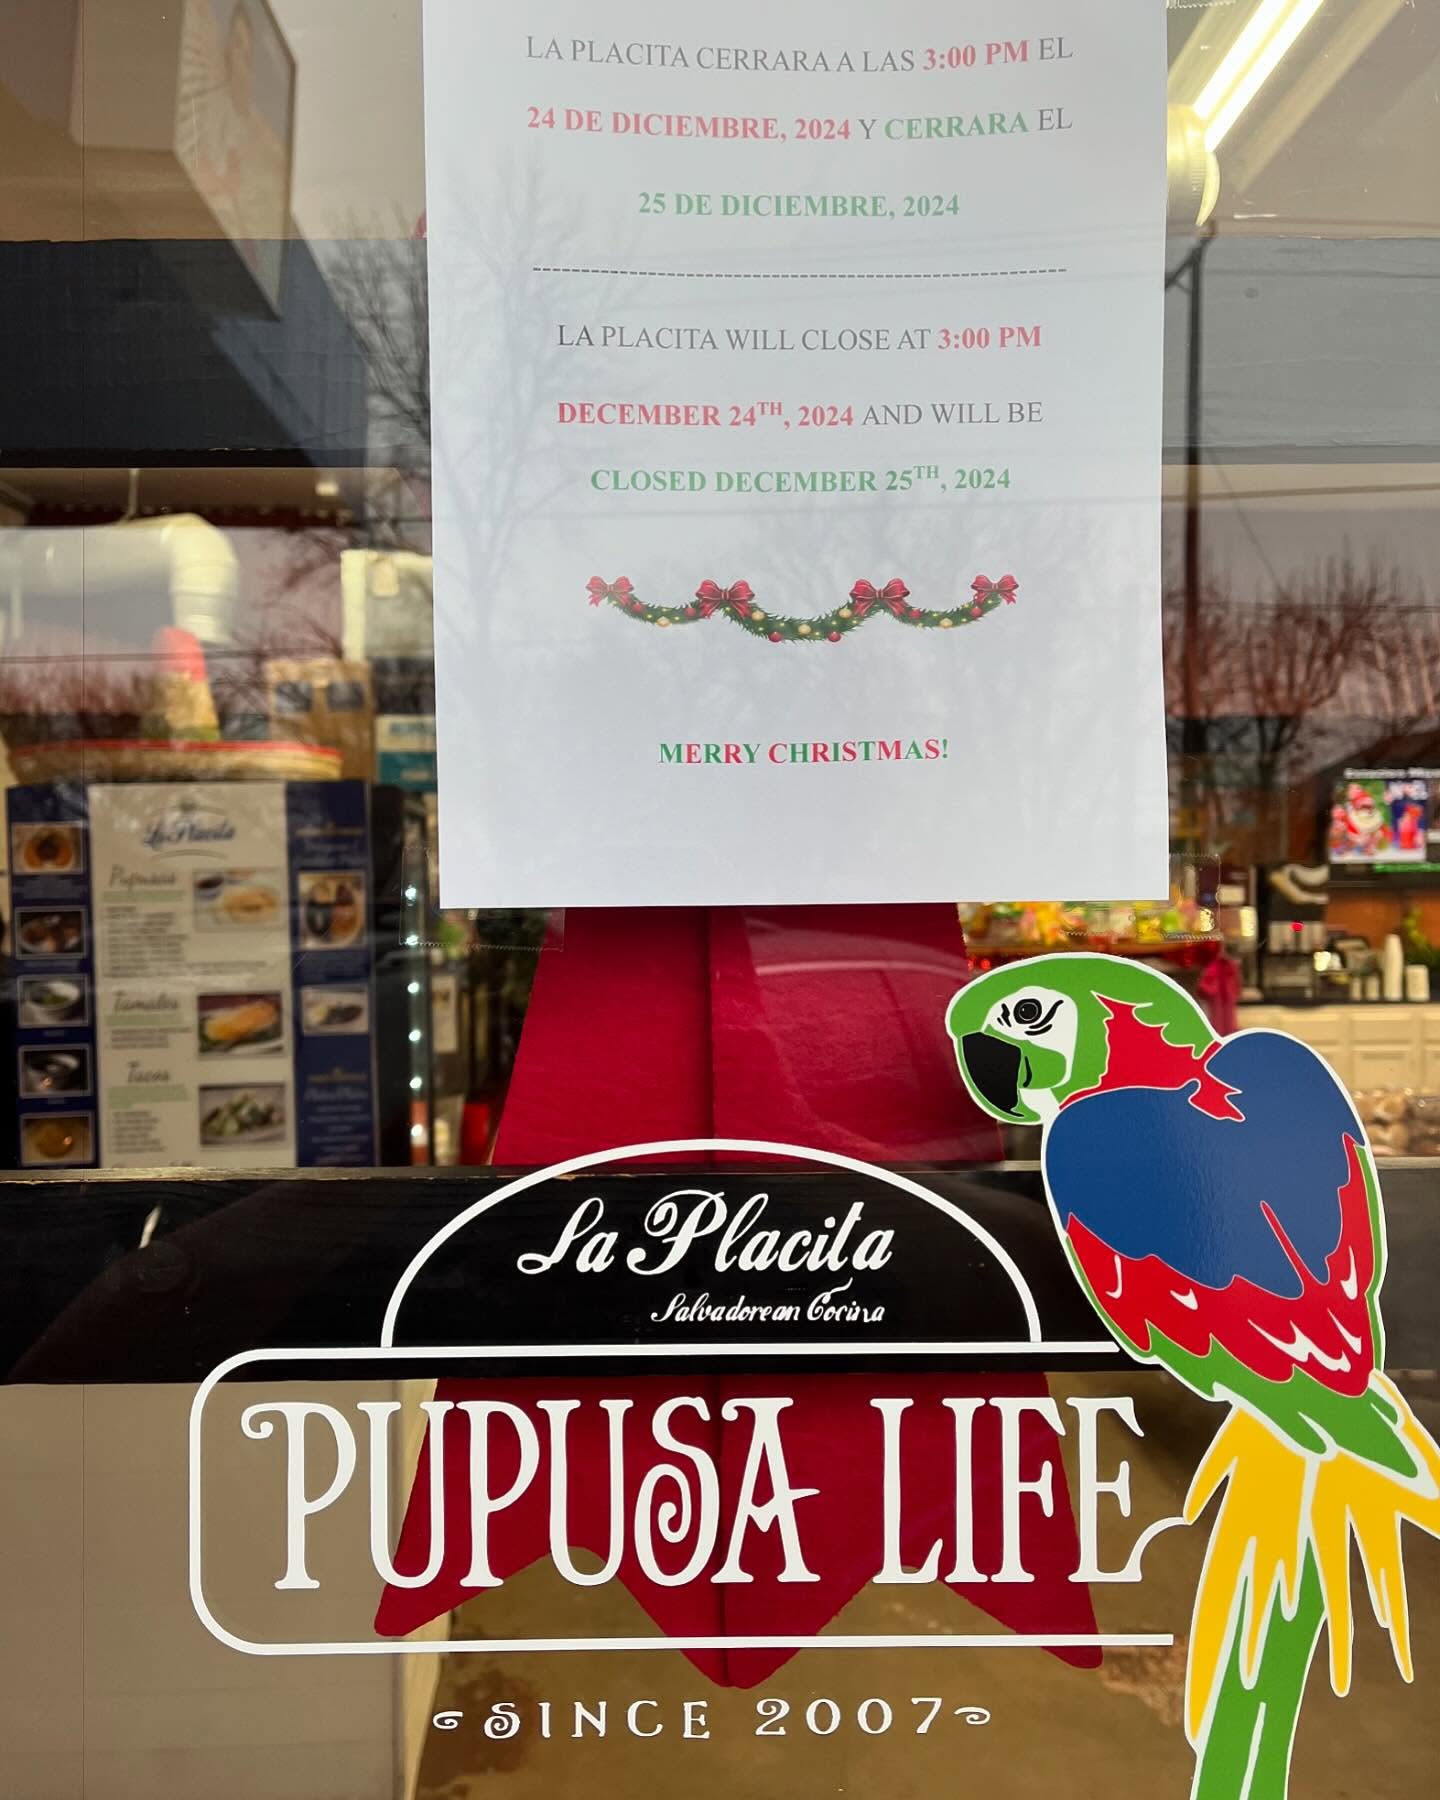 LA PLACITA CERRARA A LAS 3:00 PM EL
24 DE DICIEMBRE, 2024 Y CERRARA EL
25 DE DICIEMBRE, 2024
--------------------------------------------------------
LA PLACITA WILL CLOSE AT 3:00 PM
DECEMBER 24TH, 2024 AND WILL BE
CLOSED DECEMBER 25TH, 2024
MERRY CHRISTMAS!
La Placita
Pupusas
Tamales
Tacos
La Placita
Salvadorean Cocina
PUPUSA LIFE
SINCE 2007